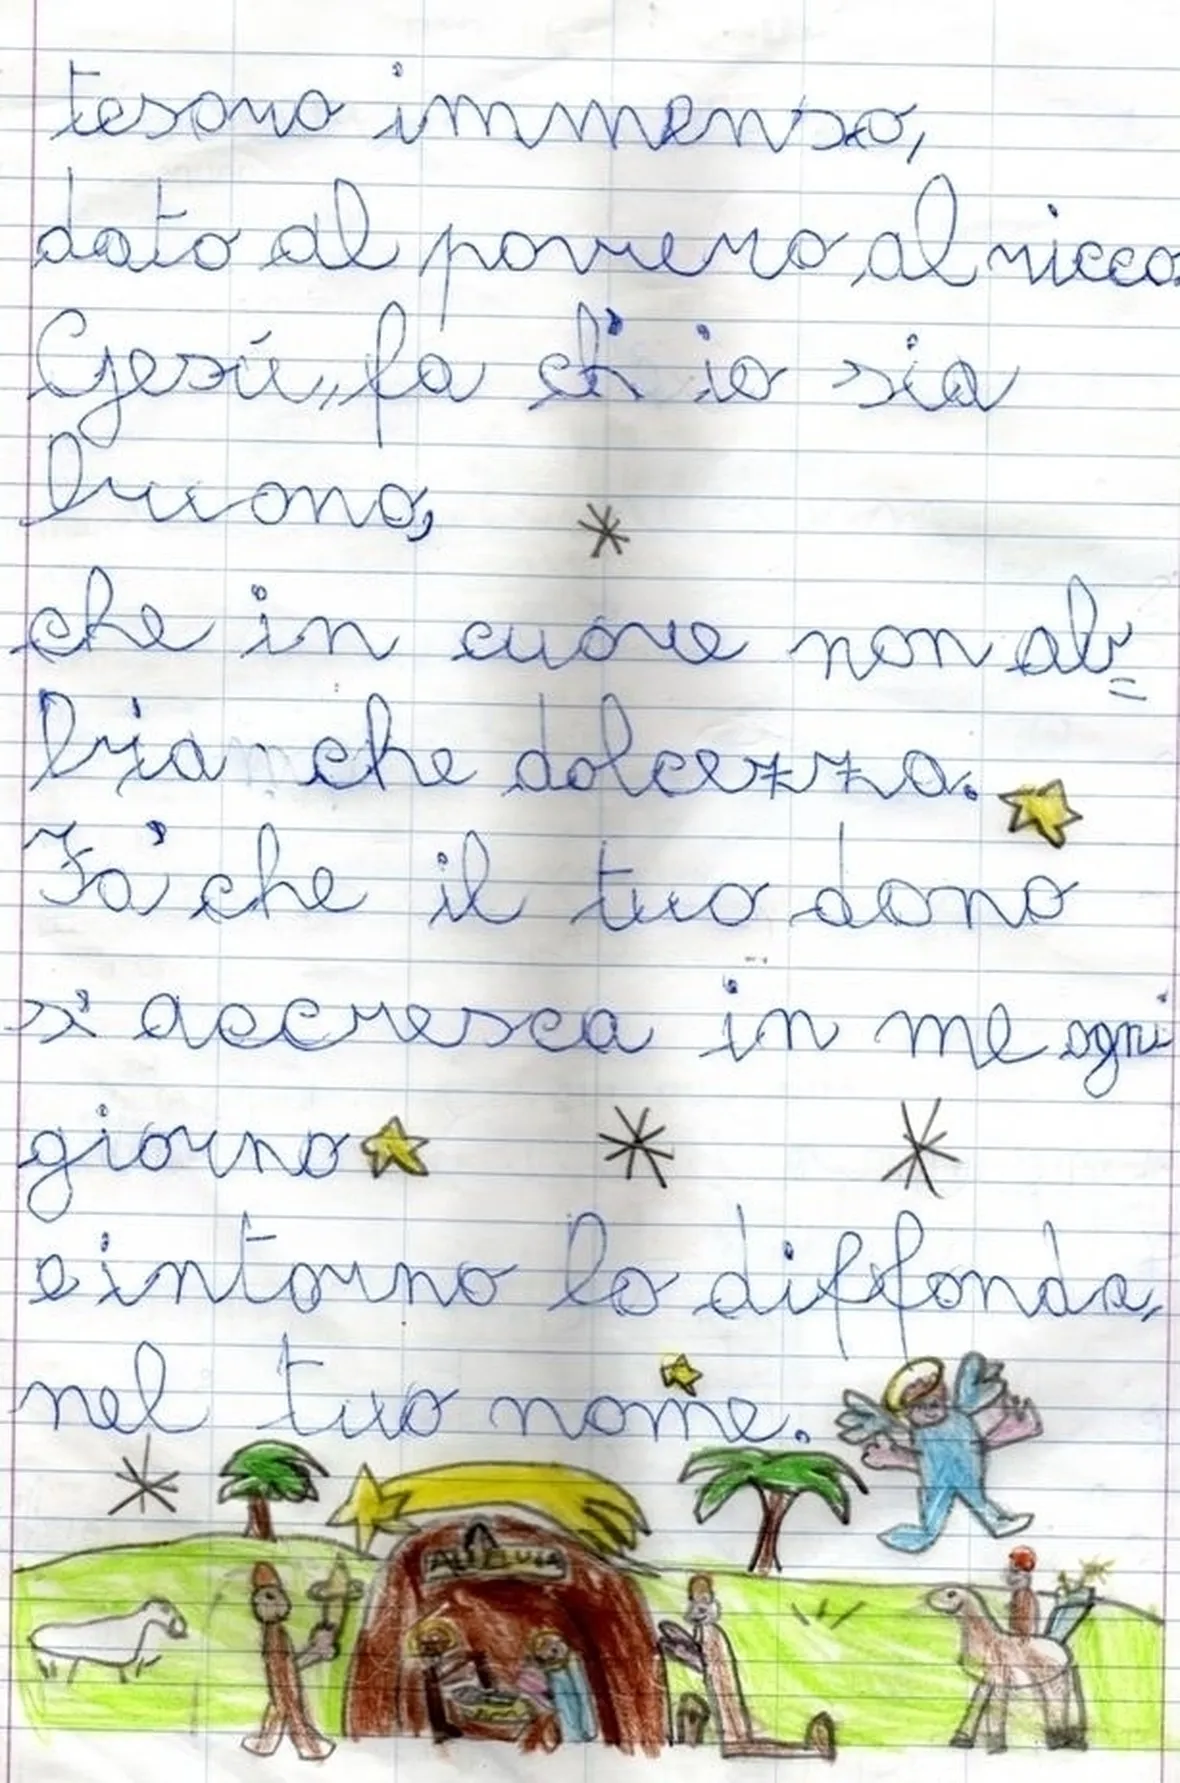 tesoro immenso,
dato al povero al ricco.
Gesú,, fa ch' io sia
buono,
che in cuore non ab=
bia che dolcezza.
Fa' che il tuo dono
s' accresca in me ogni
giorno
e intorno lo diffonda,
nel tuo nome.
ALLELUIA